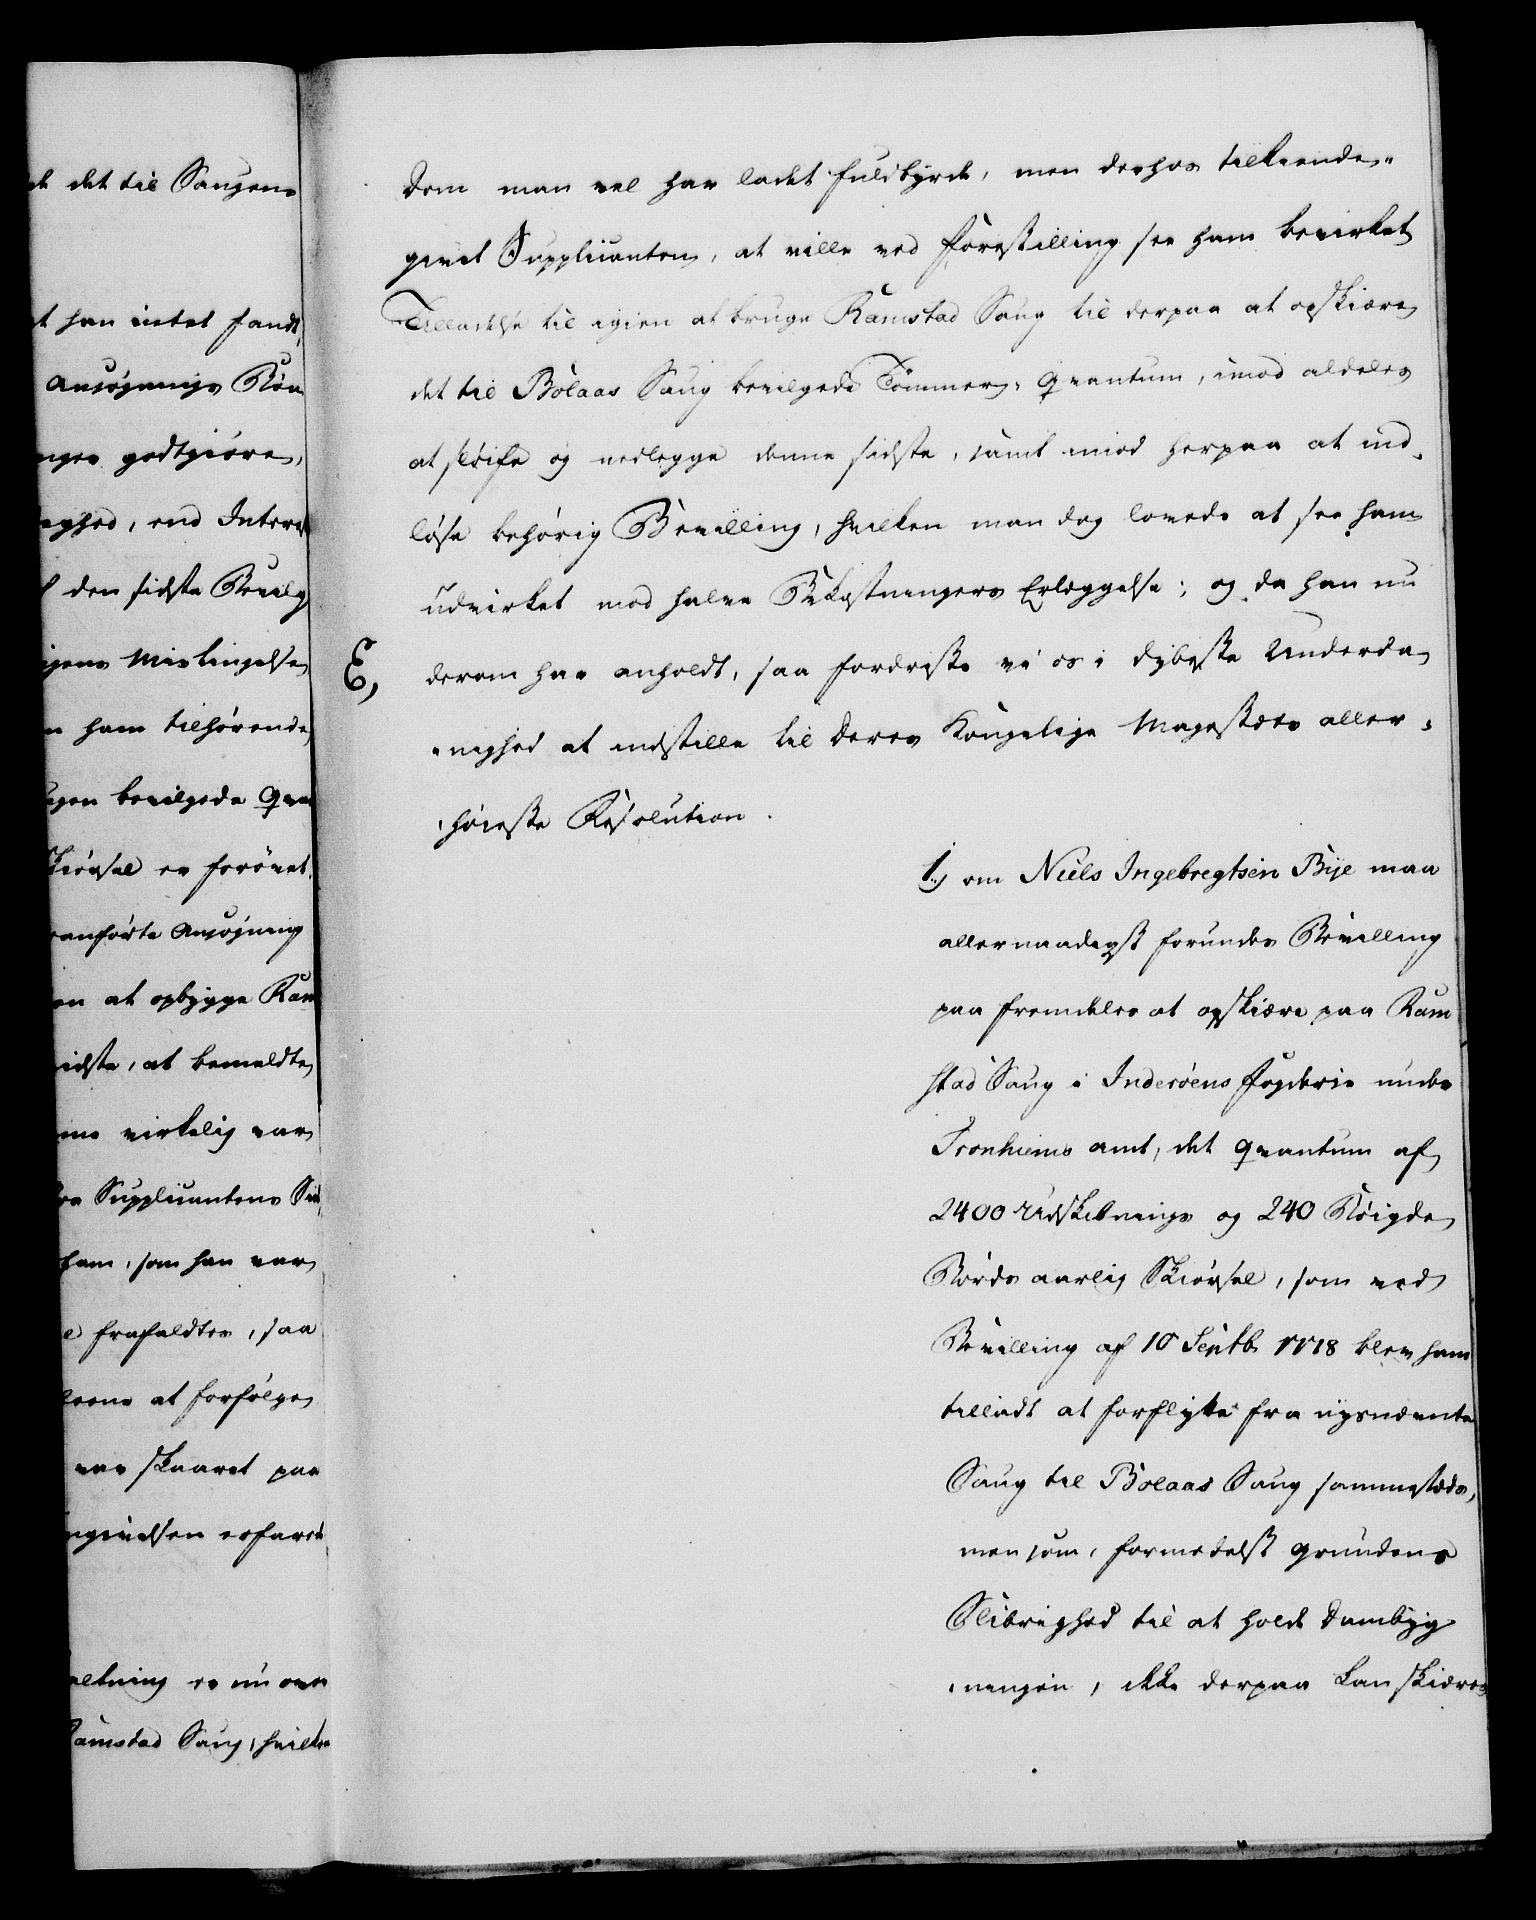 det til Saugens
han intet fandt,
Ansøgnings Bøn
godtgiøre,
den sidste Bevilg
Mislingelse
ham tilhørende
bevilgede Qva
Skiørsel er forøvet
anførte Ansøgning
at opbygge Ram
sidste, at bemeldte
virkelig var
Supplicantens
ham, som han var
frafaldtes, saa
at forfølge
skaaret paa
er nu
Ramstad Saug, hvilke
Dom man vel har ladet fuldbyrde, men derhos tilkiende-
givet Supplicanten, at ville ved Forestilling see ham bevirket
Tilladelse til igien at bruge Ramstad Saug til derpaa at opskiære
det til Bølaas Saug bevilgede Tømmer-Qvantum, imod aldeles
at sløife og nedlegge denne sidste, samt imod herpaa at ind-
løse behørig Bevilling, hvilken man dog lovede at see ham
udvirket mod halve Bekostningers Erlæggelse; og da han nu
E, derom har anholdt, saa fordriste vi os i dybeste Underda-
-nighed at indstille til Deres Kongelige Majestæts aller-
-høieste Resolution.
1.) om Niels Ingebregtsen Bye maa
allernaadigst forundes Bevilling
paa fremdeles at opskiære paa Ram
stad Saug i Inderøens Fogderie under
Tronhiems Amt, det Qvantum af
2400 Udskibnings og 240 Bøigde
Bords aarlig Skiørsel, som ved
Bevilling af 10 Septb. 1778 blev ham
tilladt at forflytte fra nysnævnte
Saug til Bølaas Saug sammesteds,
men som, formedelst Grundens
Slibrighed til at holde Dambyg
-ningen, ikke derpaa kan skiæres